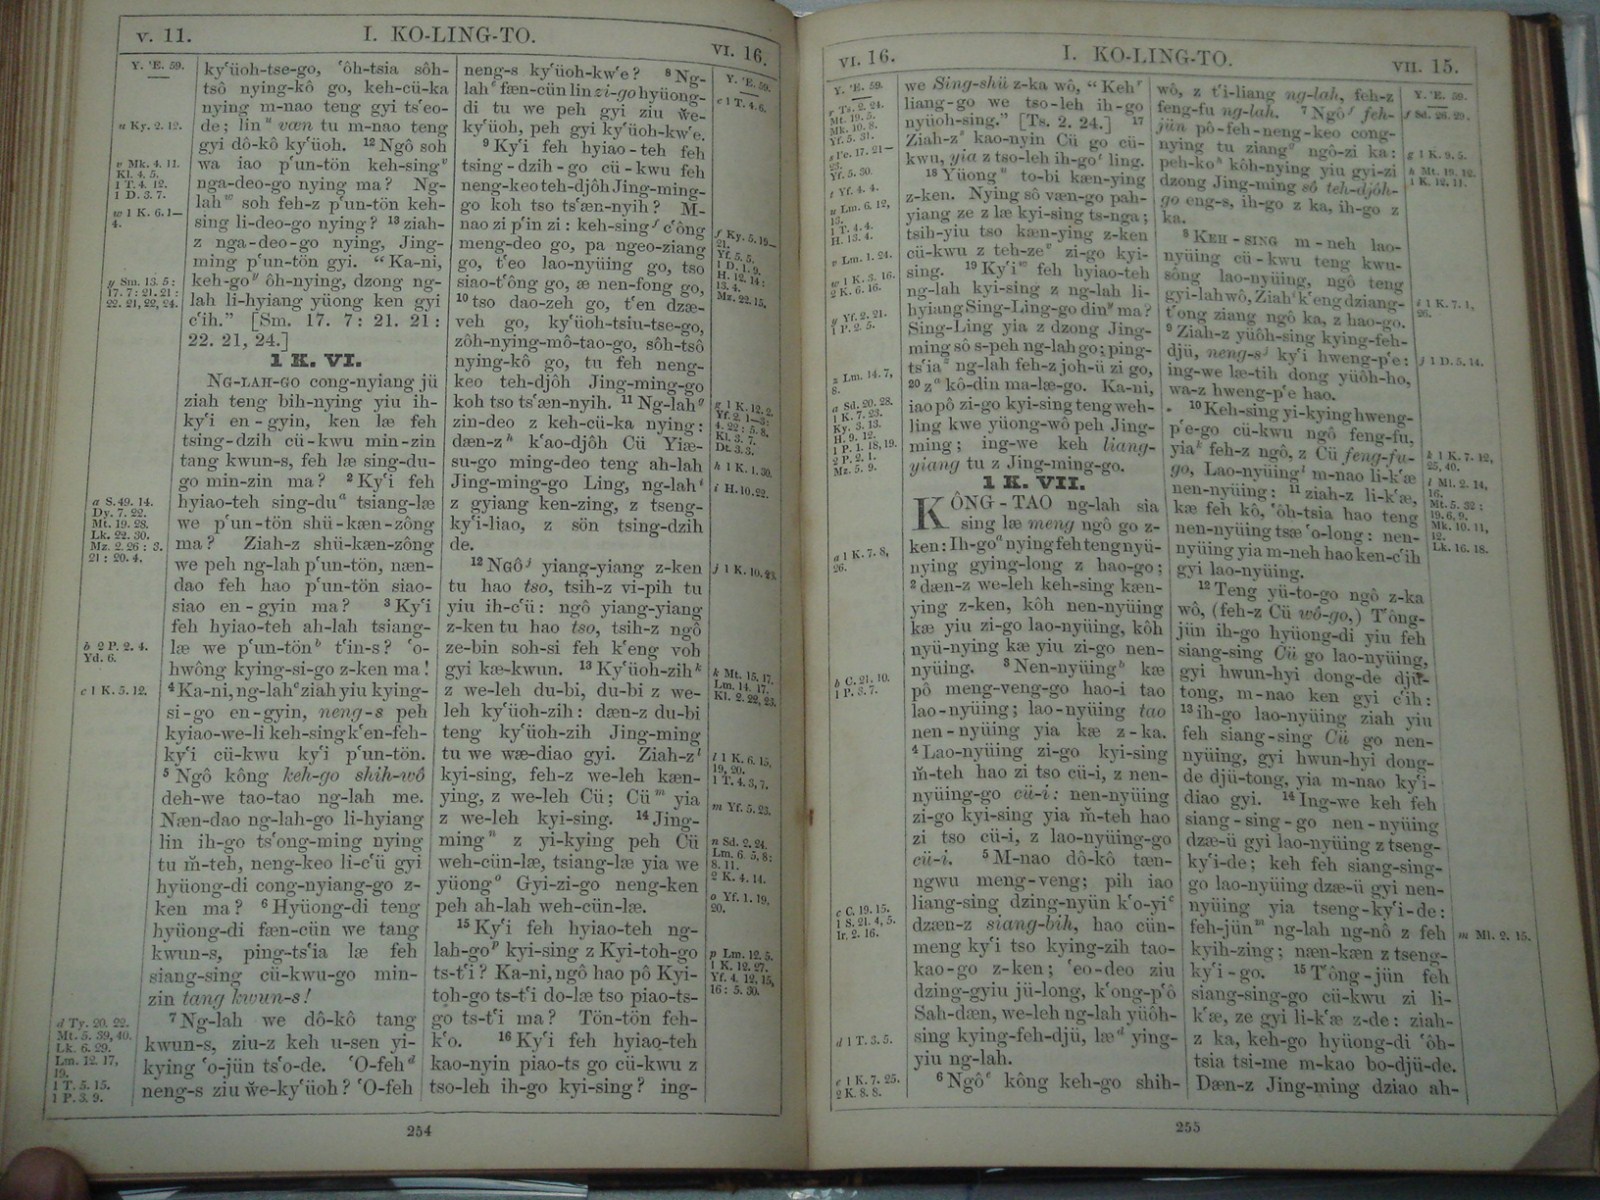 v. 11.
I. KO-LING-TO.
VI. 16.
Y. 'E. 59.
u Ky. 2. 12.
v Mk. 4. 11.
Kl. 4. 5.
1 T. 4. 12.
1 D. 3. 7.
w 1 K. 6. 1—
4.
y Sm. 13. 5 :
17. 7 : 21. 21 :
22. 21, 22, 24.
a S. 49. 14.
Dy. 7. 22.
Mt. 19. 28.
Lk. 22. 30.
Mz. 2. 26 : 3.
21 : 20. 4.
b 2 P. 2. 4.
Yd. 6.
c 1 K. 5. 12.
d Ty. 20. 22.
Mt. 5. 39, 40.
Lk. 6. 29.
Lm. 12. 17,
19.
1 T. 5. 15.
1 P. 3. 9.
kyʻüoh-tse-go, ʻôh-tsia sôh-
tsô nying-kô go, keh-cü-ka
nying m-nao teng gyi tsʻeo-
de; lin u væn tu m-nao teng
gyi dô-kô kyʻüoh. 12 Ngô soh
wa iao pʻun-tön keh-sing v
nga-deo-go nying ma? Ng-
lah w soh feh-z pʻun-tön keh-
sing li-deo-go nying? 13 ziah-
z nga-deo-go nying, Jing-
ming pʻun-tön gyi. “Ka-ni,
keh-go y ôh-nying, dzong ng-
lah li-hyiang yüong ken gyi
cʻih.” [Sm. 17. 7 : 21. 21 :
22. 21, 24.]
1 K. VI.
NG-LAH-GO cong-nyiang jü
ziah teng bih-nying yiu ih-
kyʻi en-gyin, ken læ feh
tsing-dzih cü-kwu min-zin
tang kwun-s, feh læ sing-du-
go min-zin ma? 2 Kyʻi feh
hyiao-teh sing-du a tsiang-læ
we pʻun-tön shü-kæn-zông
ma? Ziah-z shü-kæn-zông
we peh ng-lah pʻun-tön, næn-
dao feh hao pʻun-tön siao-
siao en-gyin ma? 3 Kyʻi
feh hyiao-teh ah-lah tsiang-
læ we pʻun-tön b tʻin-s? ʻo-
hwông kying-si-go z-ken ma!
4 Ka-ni, ng-lah c ziah yiu kying-
si-go en-gyin, neng-s peh
kyiao-we-li keh-sing kʻen-feh-
kyʻi cü-kwu kyʻi pʻun-tön.
5 Ngô kông keh-go shih-wô
deh-we tao-tao ng-lah me.
Næn-dao ng-lah-go li-hyiang
lin ih-go tsʻong-ming nying
tu m̆-teh, neng-keo li-cʻü gyi
hyüong-di cong-nyiang-go z-
ken ma? 6 Hyüong-di teng
hyüong-di fæn-cün we tang
kwun-s, ping-tsʻia læ feh
siang-sing cü-kwu-go min-
zin tang kwun-s!
7 Ng-lah we dô-kô tang
kwun-s, ziu-z keh u-sen yi-
kying ʻo-jün tsʻo-de. ʻO-feh d
neng-s ziu w̆e-kyʻüoh? ʻO-feh
neng-s kyʻüoh-kwʻe? 8 Ng-
lah e fæn-cün lin zi-go hyüong-
di tu we peh gyi ziu w̆e-
kyʻüoh, peh gyi kyʻüoh-kwʻe.
9 Kyʻi feh hyiao-teh feh
tsing-dzih-go cü-kwu feh
neng-keo teh-djôh Jing-ming-
go koh tso tsʻæn-nyih? M-
nao zi pʻin zi : keh-sing f cʻông
meng-deo go, pa ngeo-ziang
go, tʻeo lao-nyüing go, tso
siao-tʻông go, æ nen-fong go,
10 tso dao-zeh go, tʻen dzæ-
veh go, kyʻüoh-tsiu-tse-go,
zôh-nying-mô-tao-go, sôh-tsô
nying-kô go, tu feh neng-
keo teh-djôh Jing-ming-go
koh tso tsʻæn-nyih. 11 Ng-lah g
zin-deo z keh-cü-ka nying :
dæn-z h kʻao-djôh Cü Yiæ-
su-go ming-deo teng ah-lah
Jing-ming-go Ling, ng-lah i
z gyiang ken-zing, z tseng-
kyʻi-liao, z sön tsing-dzih
de.
12 Ngô j yiang-yiang z-ken
tu hao tso, tsih-z vi-pih tu
yiu ih-cʻü : ngô yiang-yiang
z-ken tu hao tso, tsih-z ngô
ze-bin soh-si feh kʻeng voh
gyi kæ-kwun. 13 Kyʻüoh-zih k
z we-leh du-bi, du-bi z we-
leh kyʻüoh-zih : dæn-z du-bi
teng kyʻüoh-zih Jing-ming
tu we wæ-diao gyi. Ziah-z l
kyi-sing, feh-z we-leh kæn-
ying, z we-leh Cü; Cü m yia
z we-leh kyi-sing. 14 Jing-
ming n z yi-kying peh Cü
weh-cün-læ, tsiang-læ yia we
yüong o Gyi-zi-go neng-ken
peh ah-lah weh-cün-læ.
15 Kyʻi feh hyiao-teh ng-
lah-go p kyi-sing z Kyi-toh-go
ts-tʻi? Ka-ni, ngô hao pô Kyi-
toh-go ts-tʻi do-læ tso piao-ts-
go ts-tʻi ma? Tön-tön feh-
kʻo. 16 Kyʻi feh hyiao-teh
kao-nyin piao-ts go cü-kwu z
tso-leh ih-go kyi-sing? ing-
Y. 'E. 59.
e 1 T. 4. 6.
f Ky. 5. 19—
21.
Yf. 5. 5.
1 D. 1. 9.
H. 12. 14 :
13. 4.
Mz. 22. 15.
g 1 K. 12. 2.
Yf. 2. 1—3 :
4. 22 : 5. 8.
Kl. 3. 7.
Dt. 3. 3.
h 1 K. 1. 30.
i H. 10. 22.
j 1 K. 10. 23.
k Mt. 15. 17.
Lm. 14. 17.
Kl. 2. 22, 23.
l 1 K. 6. 15,
19, 20.
1 T. 4. 3, 7.
m Yf. 5. 23.
n Sd. 2. 24.
Lm. 6. 5, 8 :
8. 11.
2 K. 4. 14.
o Yf. 1. 19,
20.
p Lm. 12. 5.
1 K. 12. 27.
Yf. 4. 12, 15,
16 : 5. 30.
254
VI. 16.
I. KO-LING-TO.
VII. 15.
Y. 'E. 59.
r Ts. 2. 24.
Mt. 19. 5.
Mk. 10. 8.
Yf. 5. 31.
s Yo. 17. 21—
23.
Yf. 5. 30.
t Yf. 4. 4.
u Lm. 6. 12,
13.
1 T. 4. 4.
H. 13. 4.
v Lm. 1. 24.
w 1 K. 3. 16.
2 K. 6. 16.
y Yf. 2. 21.
1 P. 2. 5.
z Lm. 14. 7,
8.
a Sd. 20. 28.
1 K. 7. 23.
Ky. 3. 13.
H. 9. 12.
1 P. 1. 18, 19.
2 P. 2. 1.
Mz. 5. 9.
a 1 K. 7. 8,
26.
b C. 21. 10.
1 P. 3. 7.
c C. 19. 15.
1 S. 21. 4, 5.
Ir. 2. 16.
d 1 T. 3. 5.
e 1 K. 7. 25.
2 K. 8. 8.
we Sing-shü z-ka wô, “Keh r
liang-go we tso-leh ih-go
nyüoh-sing.” [Ts. 2. 24.] 17
Ziah-z s kao-nyin Cü go cü-
kwu, yia z tso-leh ih-go t ling.
18 Yüong u to-bi kæn-ying
z-ken. Nying sô væn-go pah-
yiang ze z læ kyi-sing ts-nga;
tsih-yiu tso kæn-ying z-ken
cü-kwu z teh-ze v zi-go kyi-
sing. 19 Kyʻi w feh hyiao-teh
ng-lah kyi-sing z ng-lah li-
hyiang Sing-Ling-go din y ma?
Sing-Ling yia z dzong Jing-
ming sô s-peh ng-lah go; ping-
tsʻia z ng-lah feh-z joh-ü zi go,
20 z a kô-din ma-læ-go. Ka-ni,
iao pô zi-go kyi-sing teng weh-
ling kwe yüong-wô peh Jing-
ming; ing-we keh liang-
yiang tu z Jing-ming-go.
1 K. VII.
KÔNG-TAO ng-lah sia
sing læ meng ngô go z-
ken : Ih-go a nying feh teng nyü-
nying gying-long z hao-go;
2 dæn-z we-leh keh-sing kæn-
ying z-ken, kôh nen-nyüing
kæ yiu zi-go lao-nyüing, kôh
nyü-nying kæ yiu zi-go nen-
nyüing. 3 Nen-nyüing b kæ
pô meng-veng-go hao-i tao
lao-nyüing; lao-nyüing tao
nen-nyüing yia kæ z-ka.
4 Lao-nyüing zi-go kyi-sing
m̆-teh hao zi tso cü-i, z nen-
nyüing-go cü-i : nen-nyüing
zi-go kyi-sing yia m̆-teh hao
zi tso cü-i, z lao-nyüing-go
cü-i. 5 M-nao dô-kô tæn-
ngwu meng-veng; pih iao
liang-sing dzing-nyün kʻo-yi c
dzæn-z siang-bih, hao cün-
meng kyʻi tso kying-zih tao-
kao-go z-ken; ʻeo-deo ziu
dzing-gyiu jü-long, kʻong-pʻô
Sah-dæn, we-leh ng-lah yüôh-
sing kying-feh-djü, læ d ying-
yiu ng-lah.
6 Ngô e kông keh-go shih-
wô, z tʻi-liang ng-lah, feh-z
feng-fu ng-lah. 7 Ngô f feh-
jün pô-feh-neng-keo cong-
nying tu ziang g ngô-zi ka :
peh-ko h kôh-nying yiu gyi-zi
dzong Jing-ming sô teh-djôh-
go eng-s, ih-go z ka, ih-go z
ka.
8 KEH-SING m-neh lao-
nyüing cü-kwu teng kwu-
sông lao-nyüing, ngô teng
gyi-lah wô, Ziah i kʻeng dziang-
tʻong ziang ngô ka, z hao-go.
9 Ziah-z yüôh-sing kying-feh-
djü, neng-s j kyʻi hweng-pʻe :
ing-we læ-tih dong yüôh-ho,
wa-z hweng-pʻe hao.
10 Keh-sing yi-kying hweng-
pʻe-go cü-kwu ngô feng-fu,
yia k feh-z ngô, z Cü feng-fu-
go, Lao-nyüing l m-nao li-kʻæ
nen-nyüing : 11 ziah-z li-kʻæ,
kæ feh kô, ʻôh-tsia hao teng
nen-nyüing tsæ ʻo-long : nen-
nyüing yia m-neh hao ken-cʻih
gyi lao-nyüing.
12 Teng yü-to-go ngô z-ka
wô, (feh-z Cü wô-go,) Tʻông-
jün ih-go hyüong-di yiu feh
siang-sing Cü go lao-nyüing,
gyi hwun-hyi dong-de djü-
tong, m-nao ken gyi cʻih :
13 ih-go lao-nyüing ziah yiu
feh siang-sing Cü go nen-
nyüing, gyi hwun-hyi dong-
de djü-tong, yia m-nao kyʻi-
diao gyi. 14 Ing-we keh feh
siang-sing-go nen-nyüing
dzæ-ü gyi lao-nyüing z tseng-
kyʻi-de; keh feh siang-sing-
go lao-nyüing dzæ-ü gyi nen-
nyüing yia tseng-kyʻi-de :
feh-jün m ng-lah ng-nô z feh
kyih-zing; næn-kæn z tseng-
kyʻi-go. 15 Tʻông-jün feh
siang-sing-go cü-kwu zi li-
kʻæ, ze gyi li-kʻæ z-de : ziah-
z ka, keh-go hyüong-di ʻôh-
tsia tsi-me m-kao bo-djü-de.
Dæn-z Jing-ming dziao ah-
Y. 'E. 59.
f Sd. 26. 29.
g 1 K. 9. 5.
h Mt. 19. 12.
1 K. 12. 11.
i 1 K. 7. 1,
26.
j 1 D. 5. 14.
k 1 K. 7. 12,
25, 40.
l Ml. 2. 14,
16.
Mt. 5. 32 :
19. 6, 9.
Mk. 10. 11,
12.
Lk. 16. 18.
m Ml. 2. 15.
255